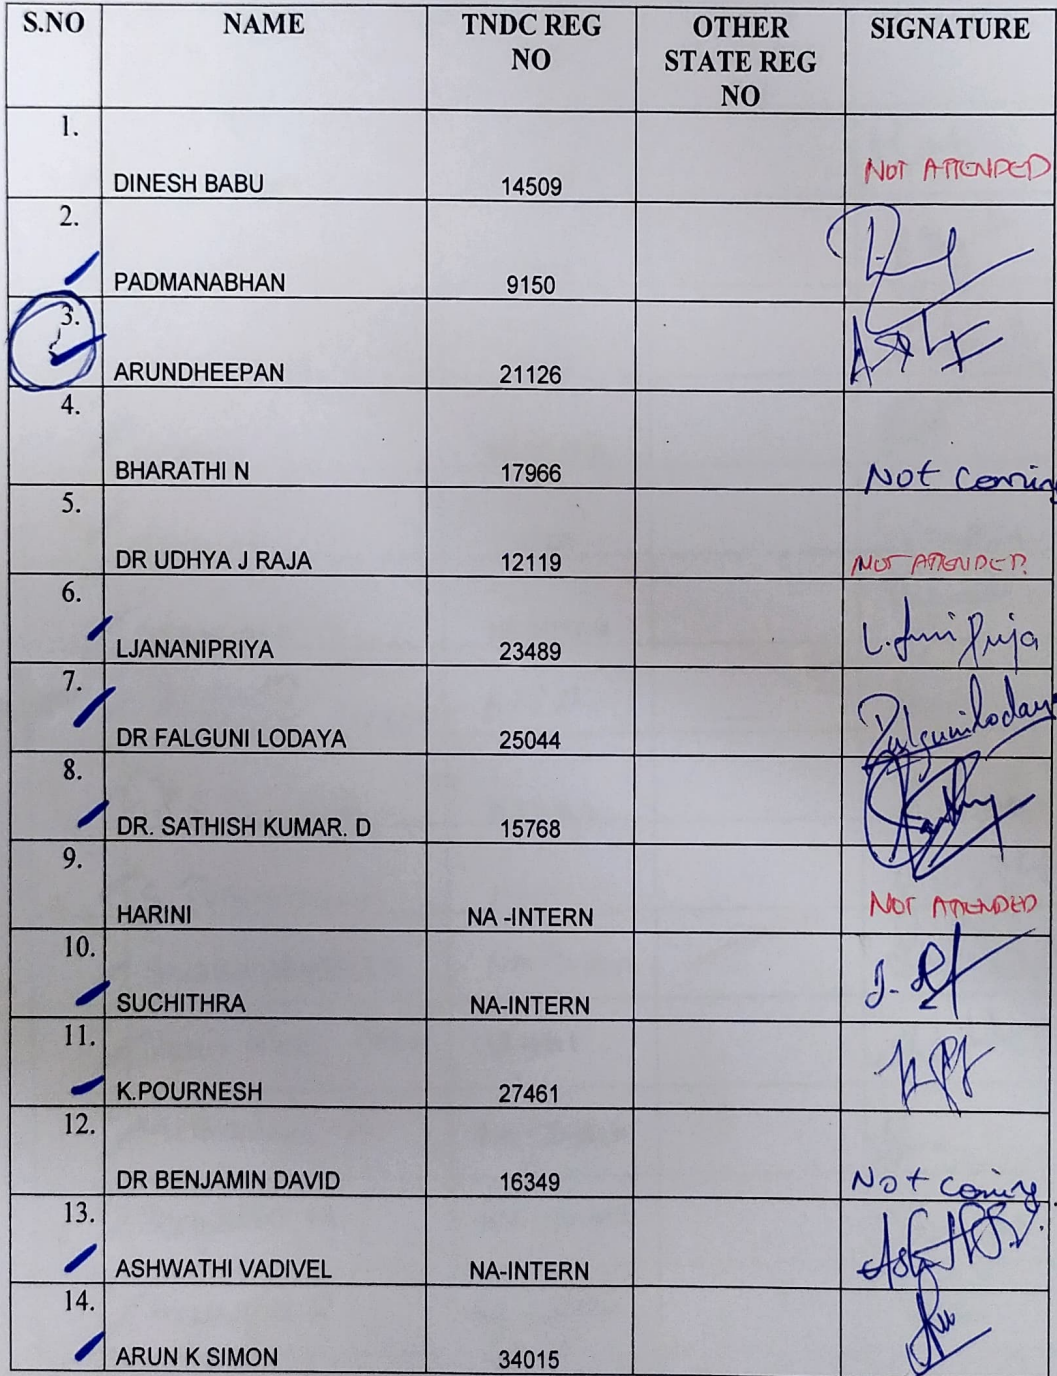 S.NO NAME TNDC REG NO OTHER STATE REG NO SIGNATURE
1. DINESH BABU 14509 NOT ATTENDED
2. PADMANABHAN 9150
3. ARUNDHEEPAN 21126
4. BHARATHI N 17966 Not coming
5. DR UDHYA J RAJA 12119 NOT ATTENDED.
6. LJANANIPRIYA 23489
7. DR FALGUNI LODAYA 25044
8. DR. SATHISH KUMAR. D 15768
9. HARINI NA -INTERN NOT ATTENDED
10. SUCHITHRA NA-INTERN
11. K.POURNESH 27461
12. DR BENJAMIN DAVID 16349 Not coming.
13. ASHWATHI VADIVEL NA-INTERN
14. ARUN K SIMON 34015